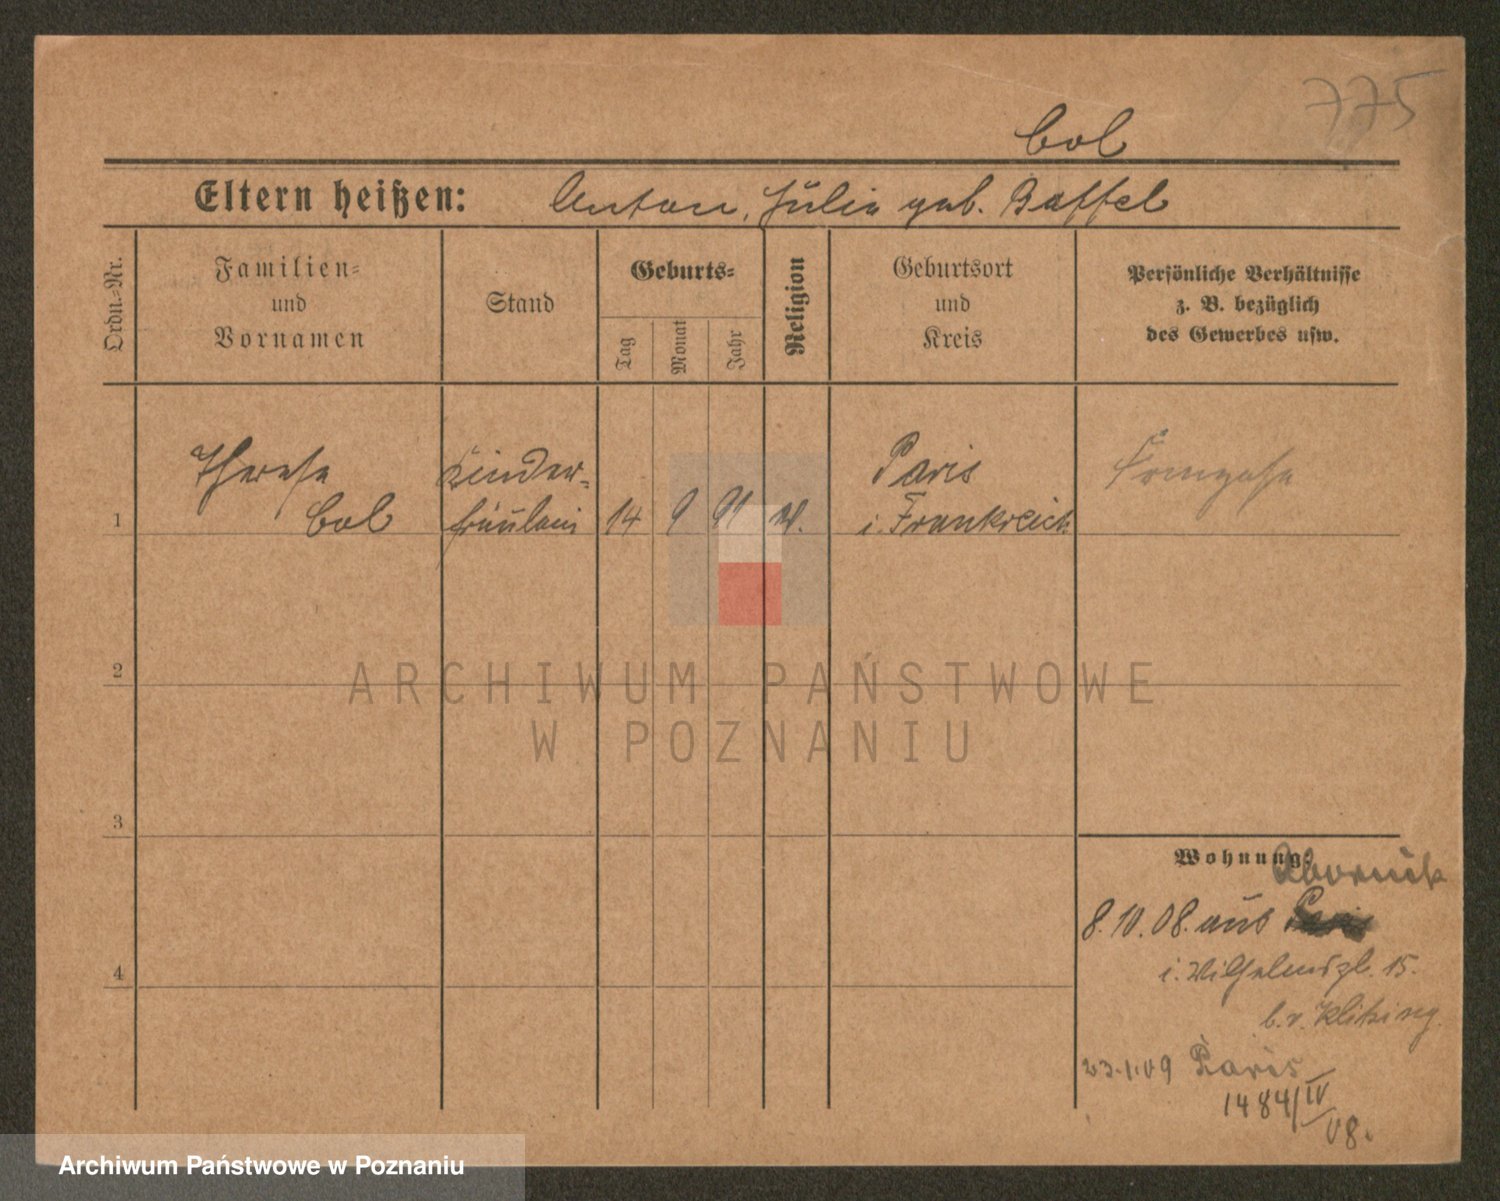 775
Col
Eltern heißen: Anton, Julie geb. Baffel
Ordn.-Nr.
Familien-
und
Vornamen
Stand
Geburts-
Tag
Monat
Jahr
Religion
Geburtsort
und
Kreis
Persönliche Verhältnisse
z. B. bezüglich
des Gewerbes usw.
1
Therese
Col
Kinder-
fräulein
14
9
91
Paris
i. Frankreich
2
ARCHIWUM PAŃSTWOWE
W POZNANIU
3
Wohnung:
Obornik
8.10.08. aus Paris
i. Wilhelmspl. 15.
b. v. Klitzing
4
23.1.09 Paris
1484/IV
08.
Archiwum Państwowe w Poznaniu